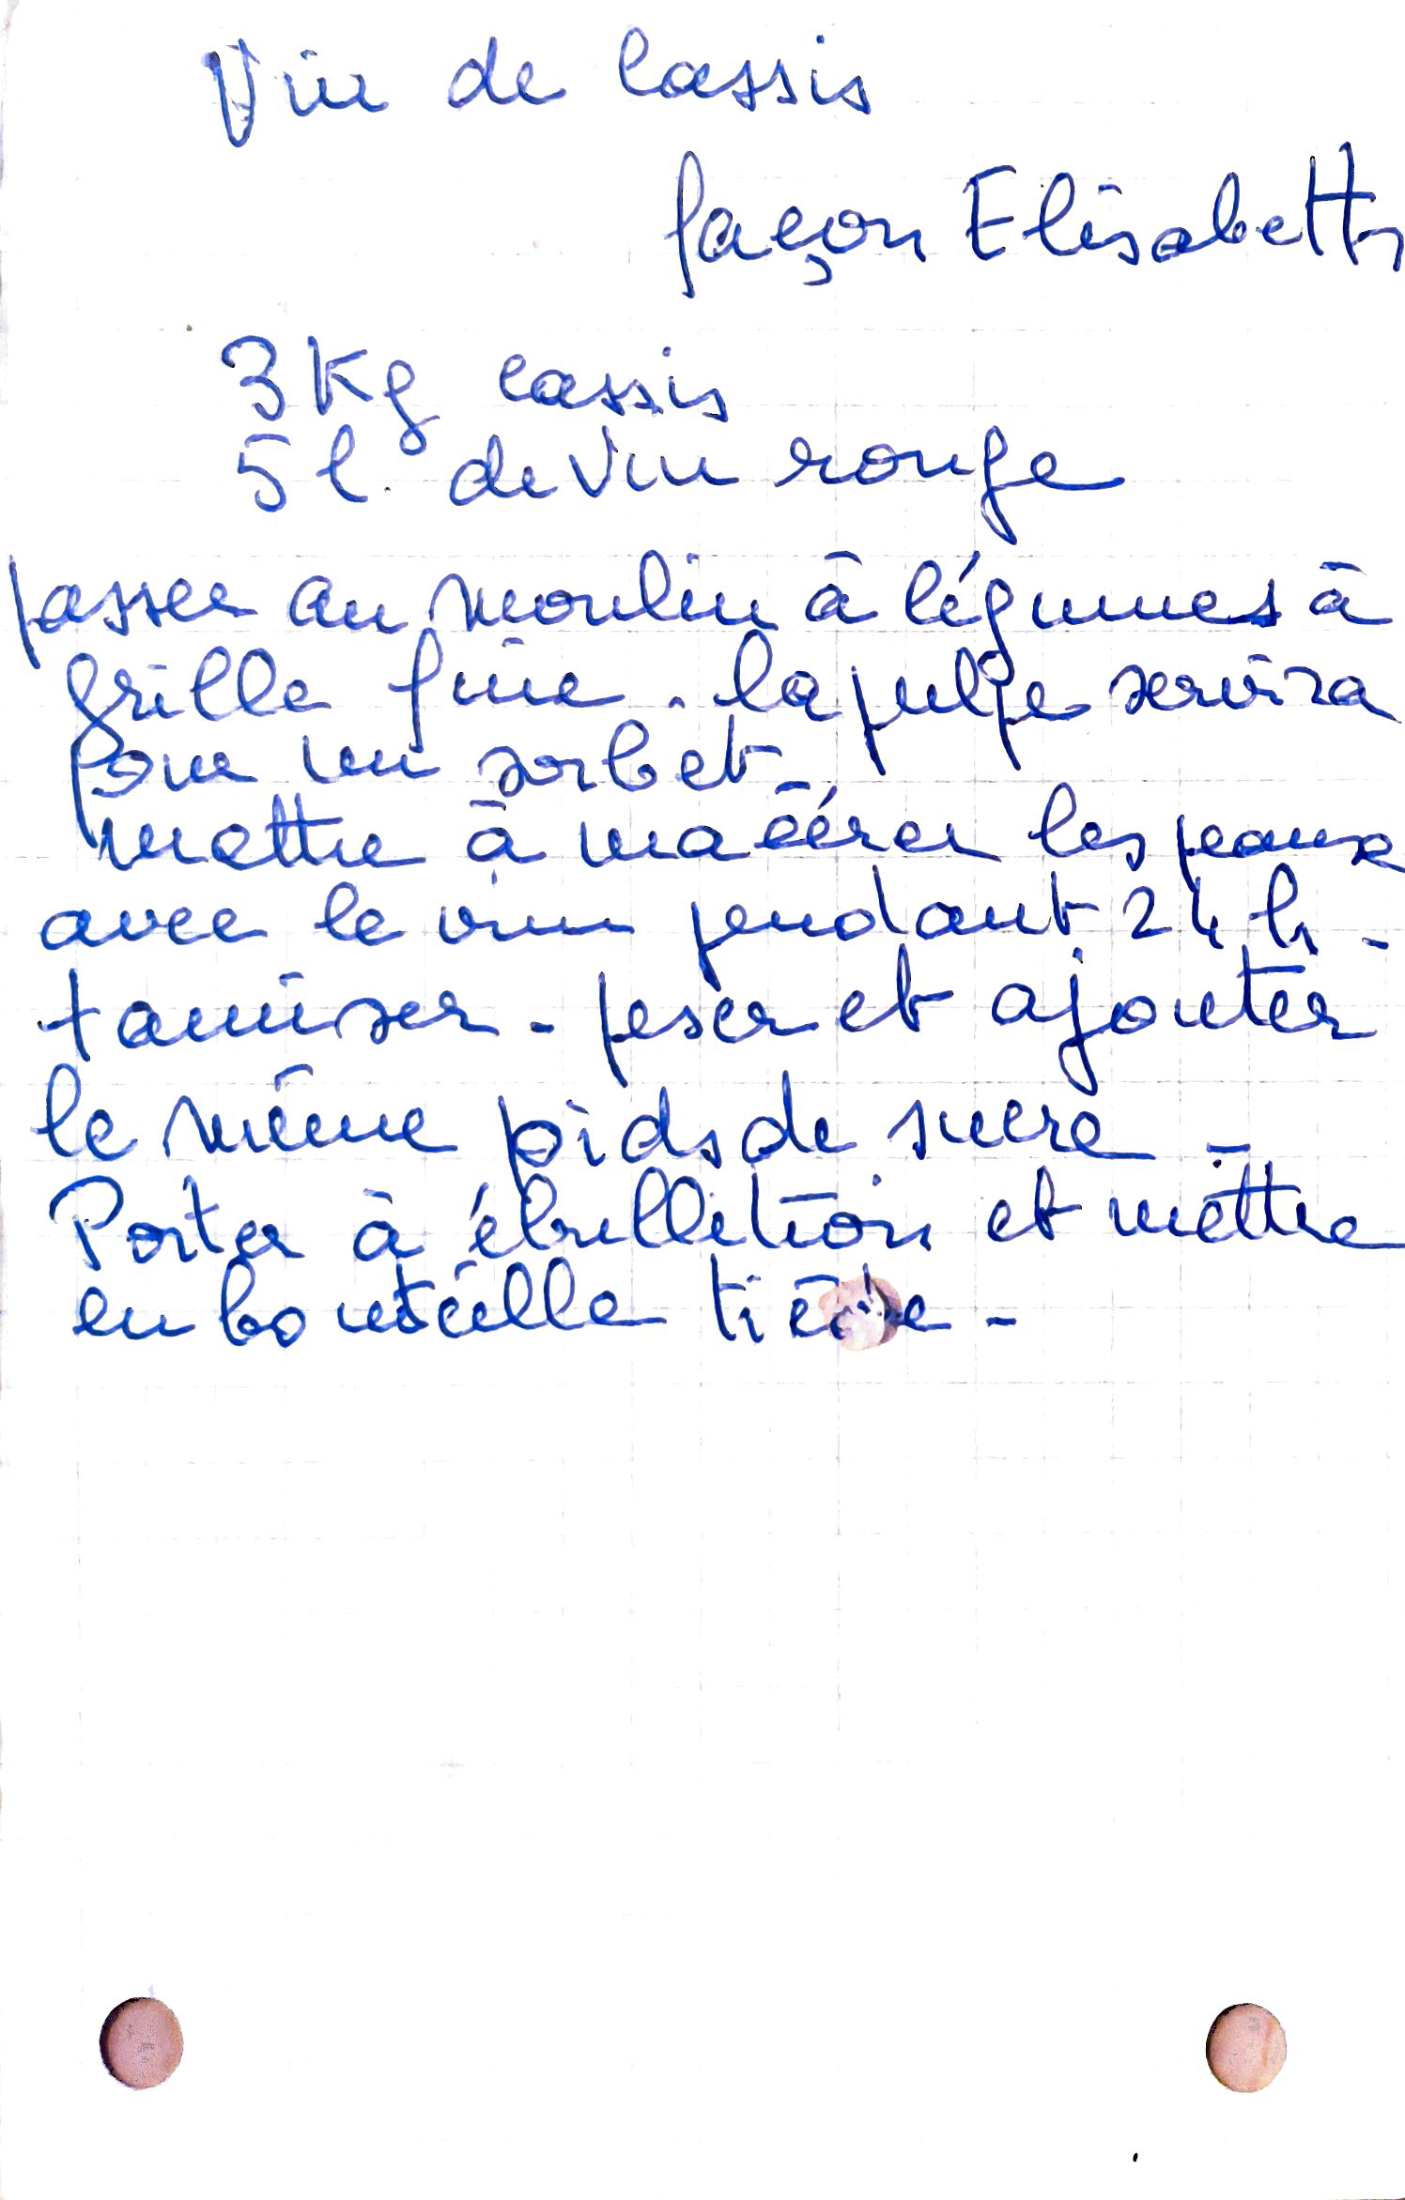 Vin de Cassis
façon Elisabeth
3 Kg cassis
5 l. de vin rouge
passer au moulin à légumes à
grille fine. la pulpe servira
pour un sorbet -
mettre à macérer les peaux
avec le vin pendant 24 h -
tamiser - peser et ajouter
le même pids de sucre -
Porter à ébullition et mettre
en bouteille tiède -